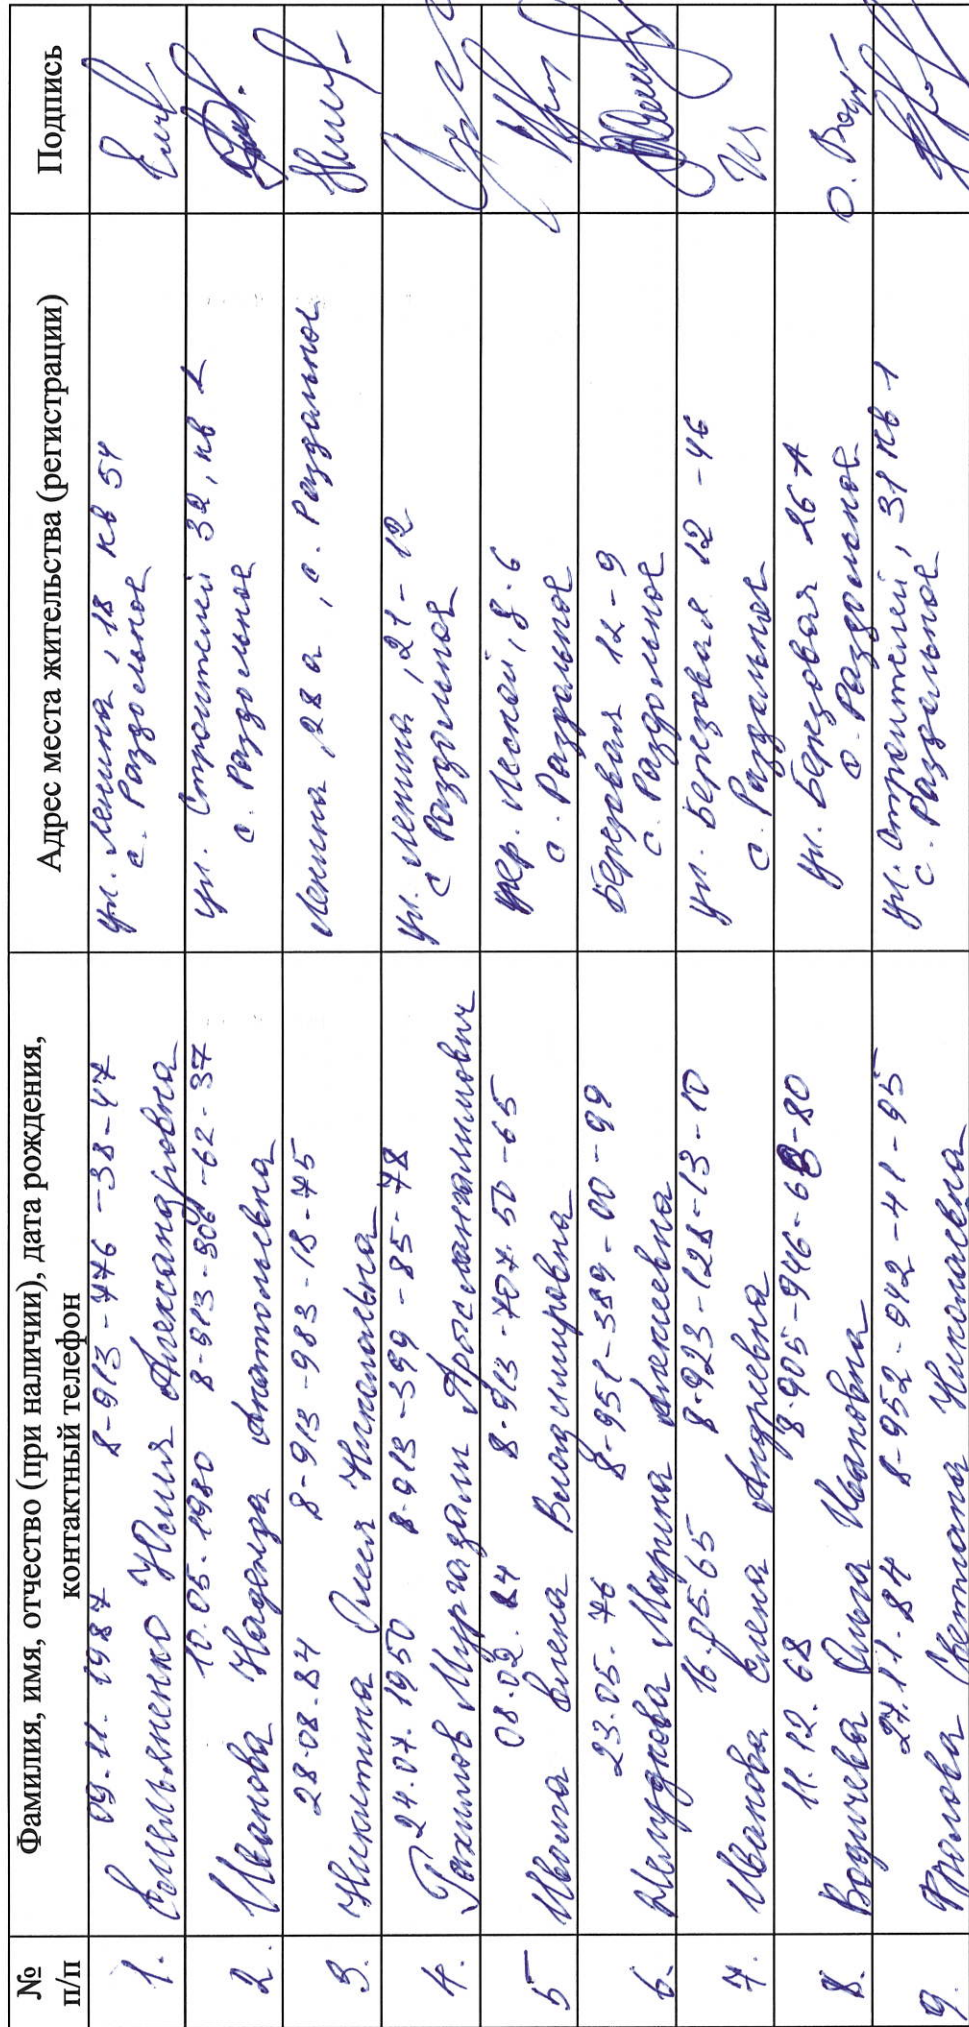 № п/п
Фамилия, имя, отчество (при наличии), дата рождения, контактный телефон
Адрес места жительства (регистрации)
Подпись
1.
09.11.1987 8-913-776-38-47
Емельяненко Юлия Александровна
ул. Ленина, 18 кв 54
с. Раздольное
2.
10.05.1980 8-913-906-62-37
Иванова Надежда Анатольевна
ул. Строителей 32, кв 2
с. Раздольное
3.
28.08.84 8-913-983-18-75
Никитина Олеся Николаевна
Ленина, 28 а, с. Раздольное
4.
24.07.1950 8-913-399-85-78
Рахимов Мургазали
ул. Ленина, 21-12
с Раздольное
5
08.02. 8-913-707-50-65
Елена Владимировна
пер. Лесной, д. 6
с. Раздольное
6.
23.05.76 8-951-389-00-99
Марина Алексеевна
Березовая 12-9
с. Раздольное
7.
16.05.65 8-923-128-13-10
Иванова Елена Андреевна
ул. Березовая 12-46
с. Раздольное
8.
11.12.68 8-905-946-6 -80
Водичева Ольга Ивановна
ул. Березовая 26 А
с. Раздольное
9.
27.11.84 8-952-942-41-95
Фролова Светлана Николаевна
ул. Строителей, 31 кв 1
с. Раздольное